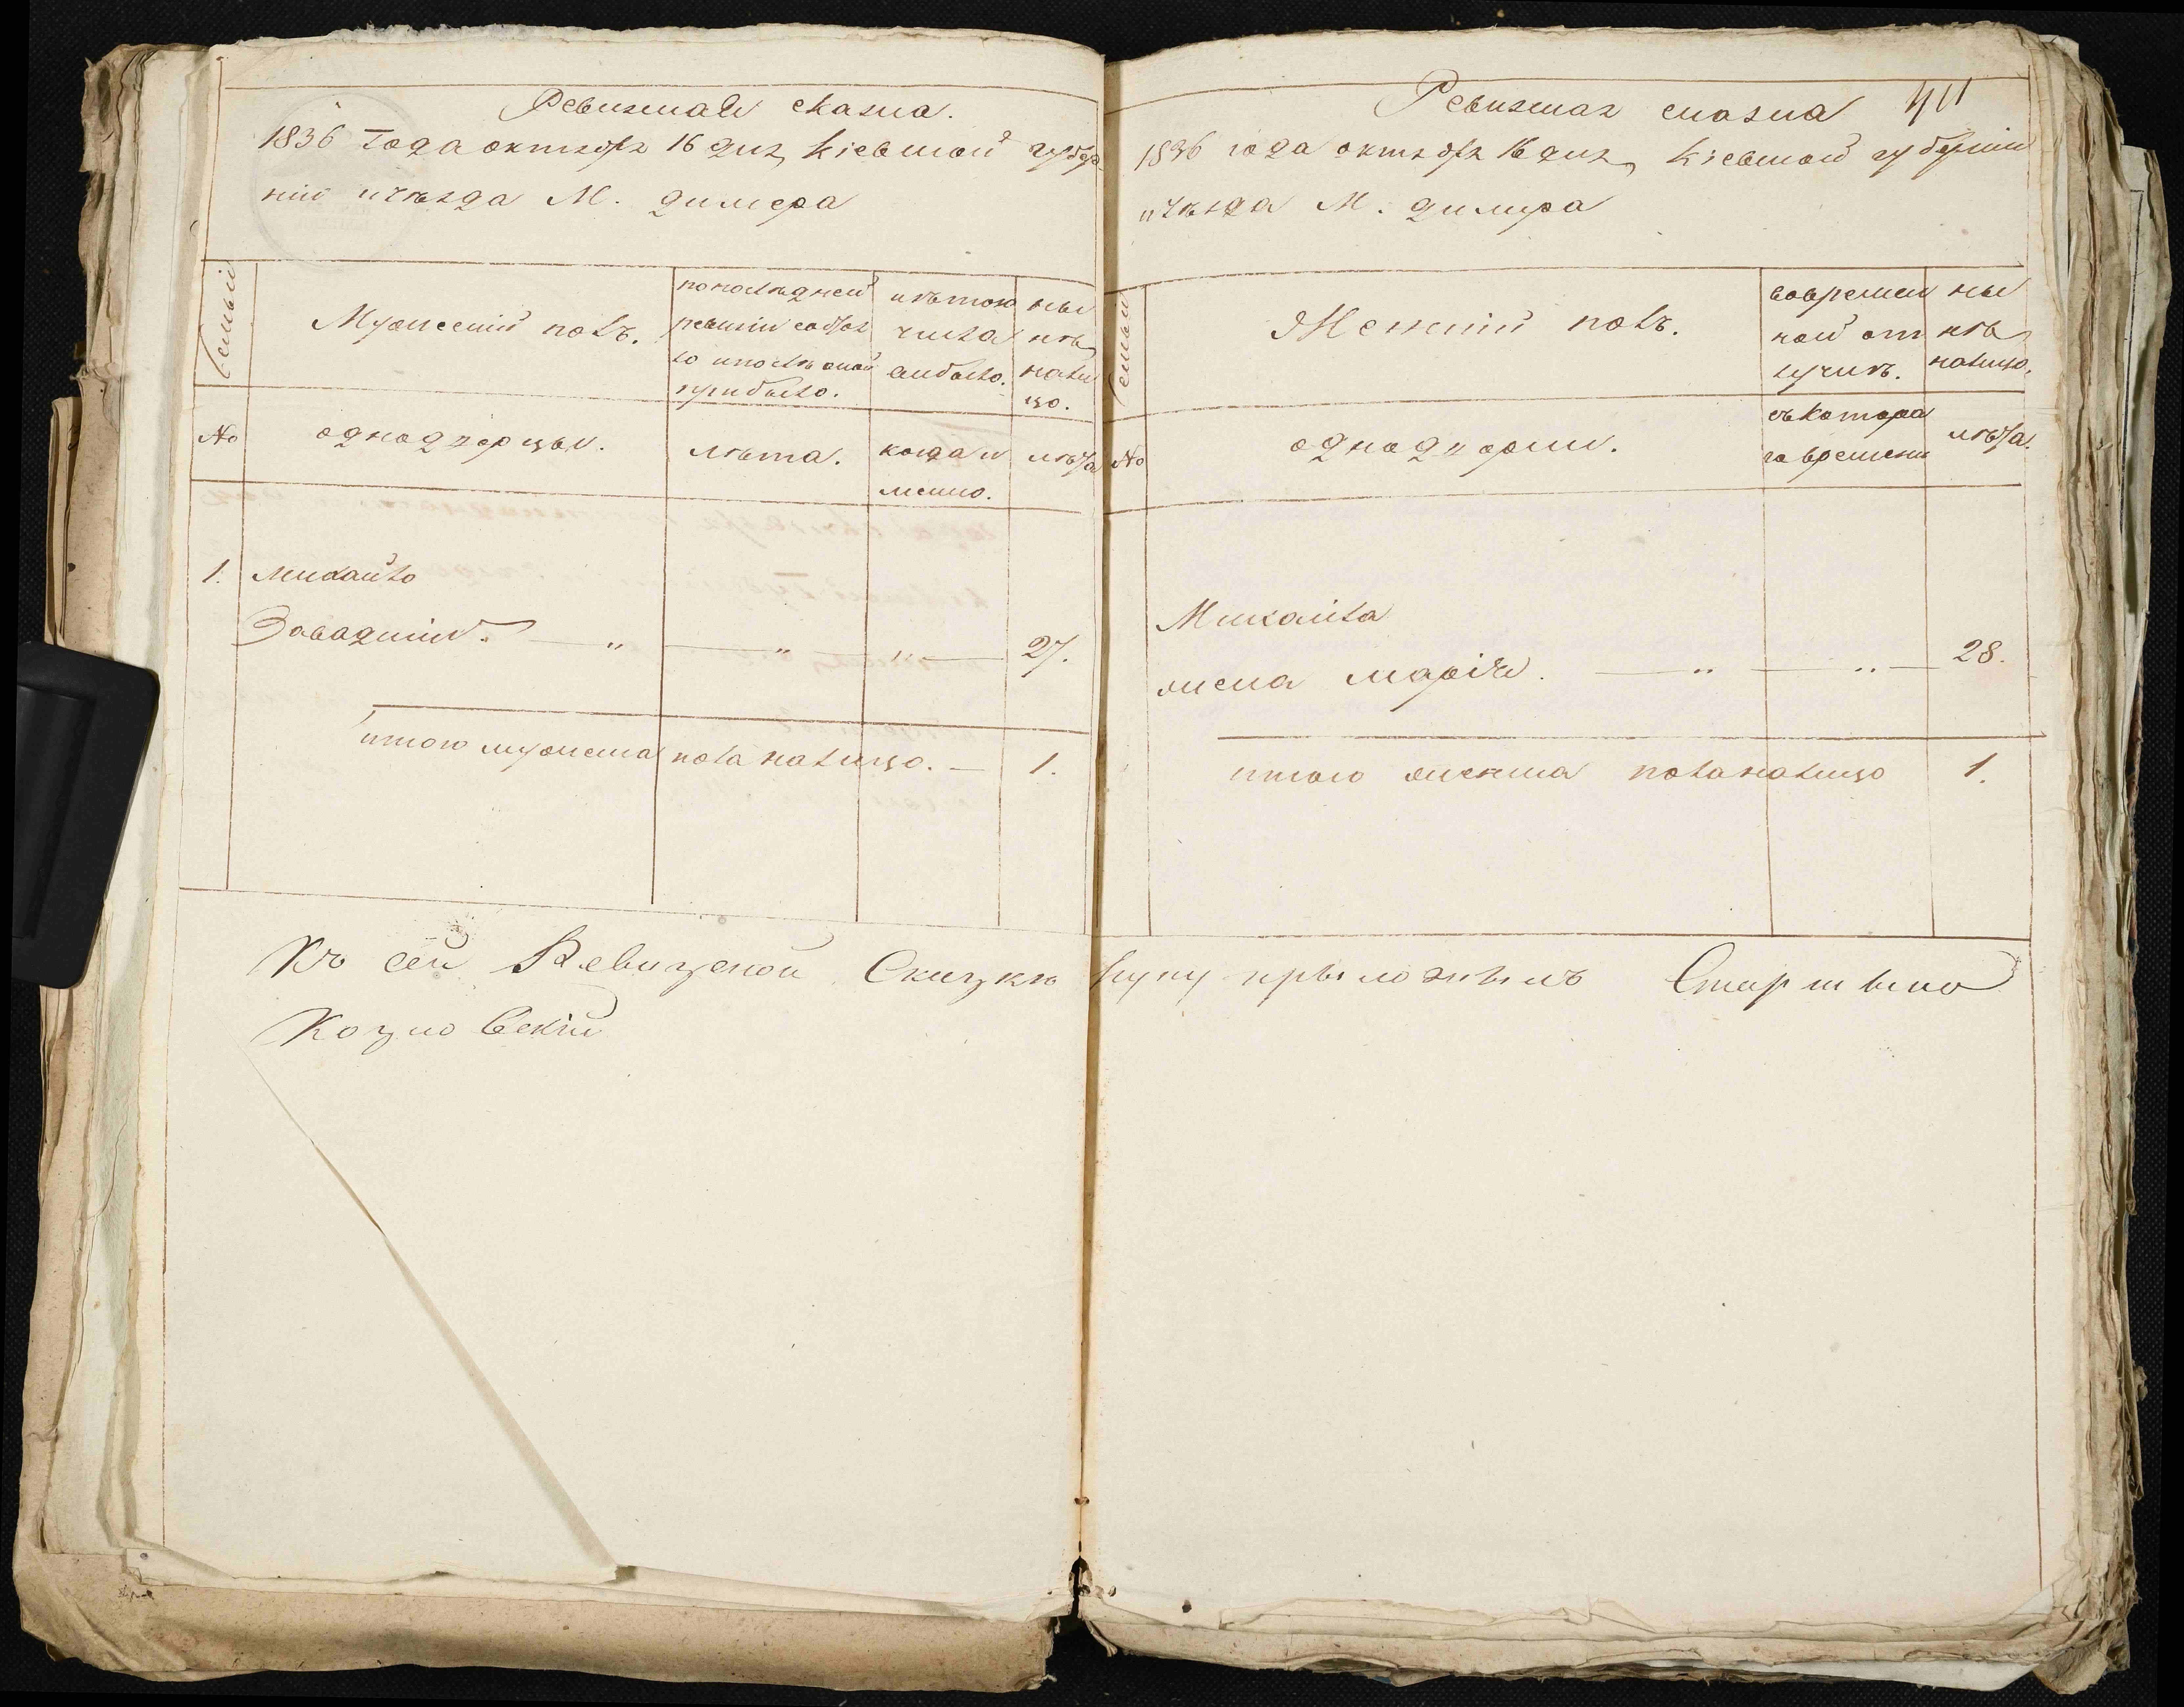 Ревизская сказка.
1836 года октября 16 дня, Кіевской губер
ніи и уѣзда М. димера
семьи
Мужескій полъ.
по последней
ревизіи состоя
ло и послѣ оной
прибыло.
изъ того
числа
выбыло.
ны
нѣ
нали
цо.
№
однодворцы.
лѣта.
когда и
менно.
лѣта
1. Михайло
Завадскій. — „ — „ — „ — 27.
итого мужеска пола налицо. — 1.
Ревизская сказка 411
1836 года октября 16 дня, Кіевской губерніи
и уѣзда М. димера
семьи
Женскій полъ.
вовремен
ной от
лучкѣ.
ны
нѣ
налицо.
№
однодворки.
съ котора
го времени
лѣта.
Михайла
жена марія. — „ — „ — 28.
итого женска пола налицо 1.
Къ сей Ревизской Сказкѣ руку приложилъ Старшына
Козловскій